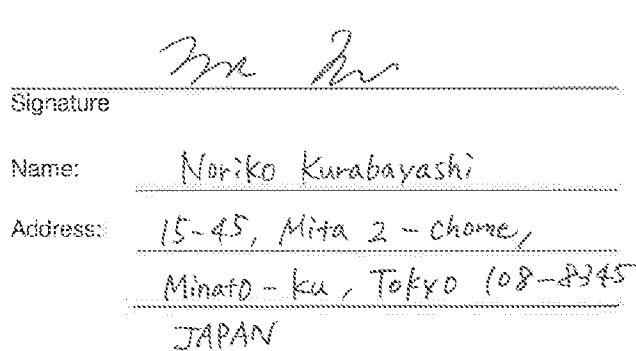 Signature
Name: Noriko Kurabayashi
Address: 15-45, Mita 2-chome,
Minato-ku, Tokyo 108-8345
JAPAN